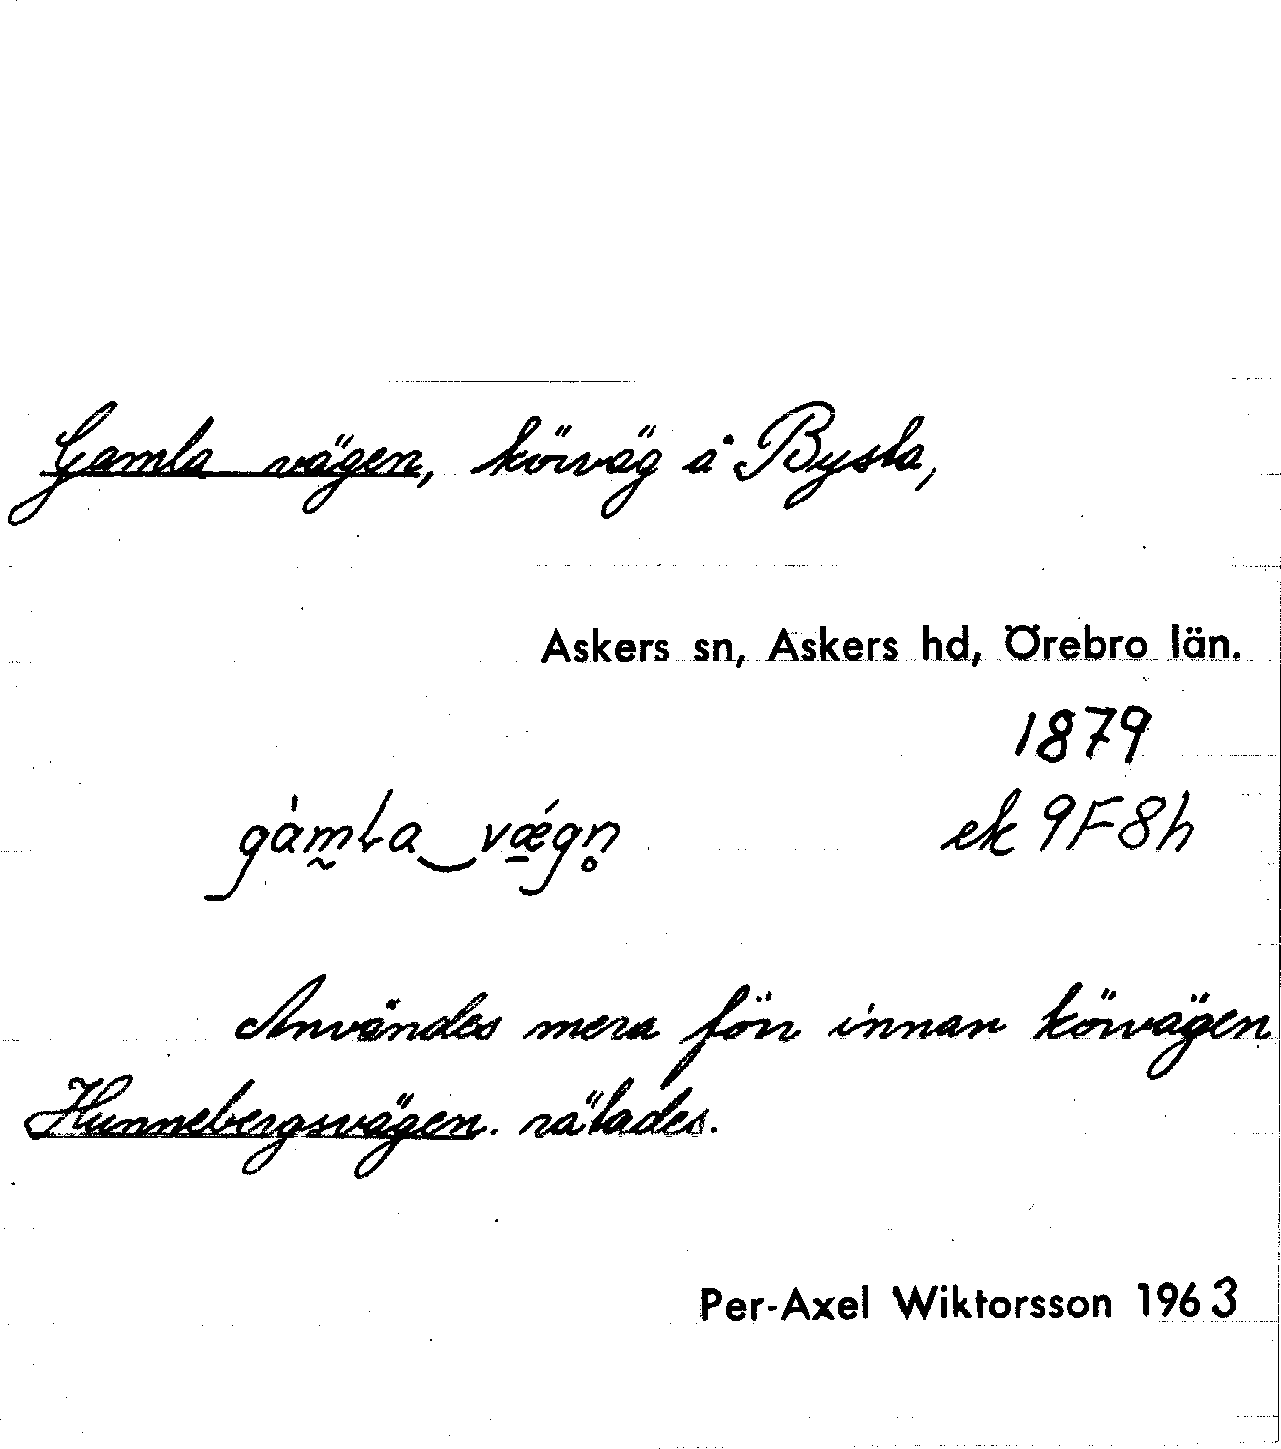 Gamla vägen, körväg å Bysta,
Askers sn, Askers hd, Örebro län.
1879
gàmla‿vǽgn̥ ek 9F8h
Användes mera förr innan körvägen
Hunnebergsvägen. rätades.
Per-Axel Wiktorsson 1963